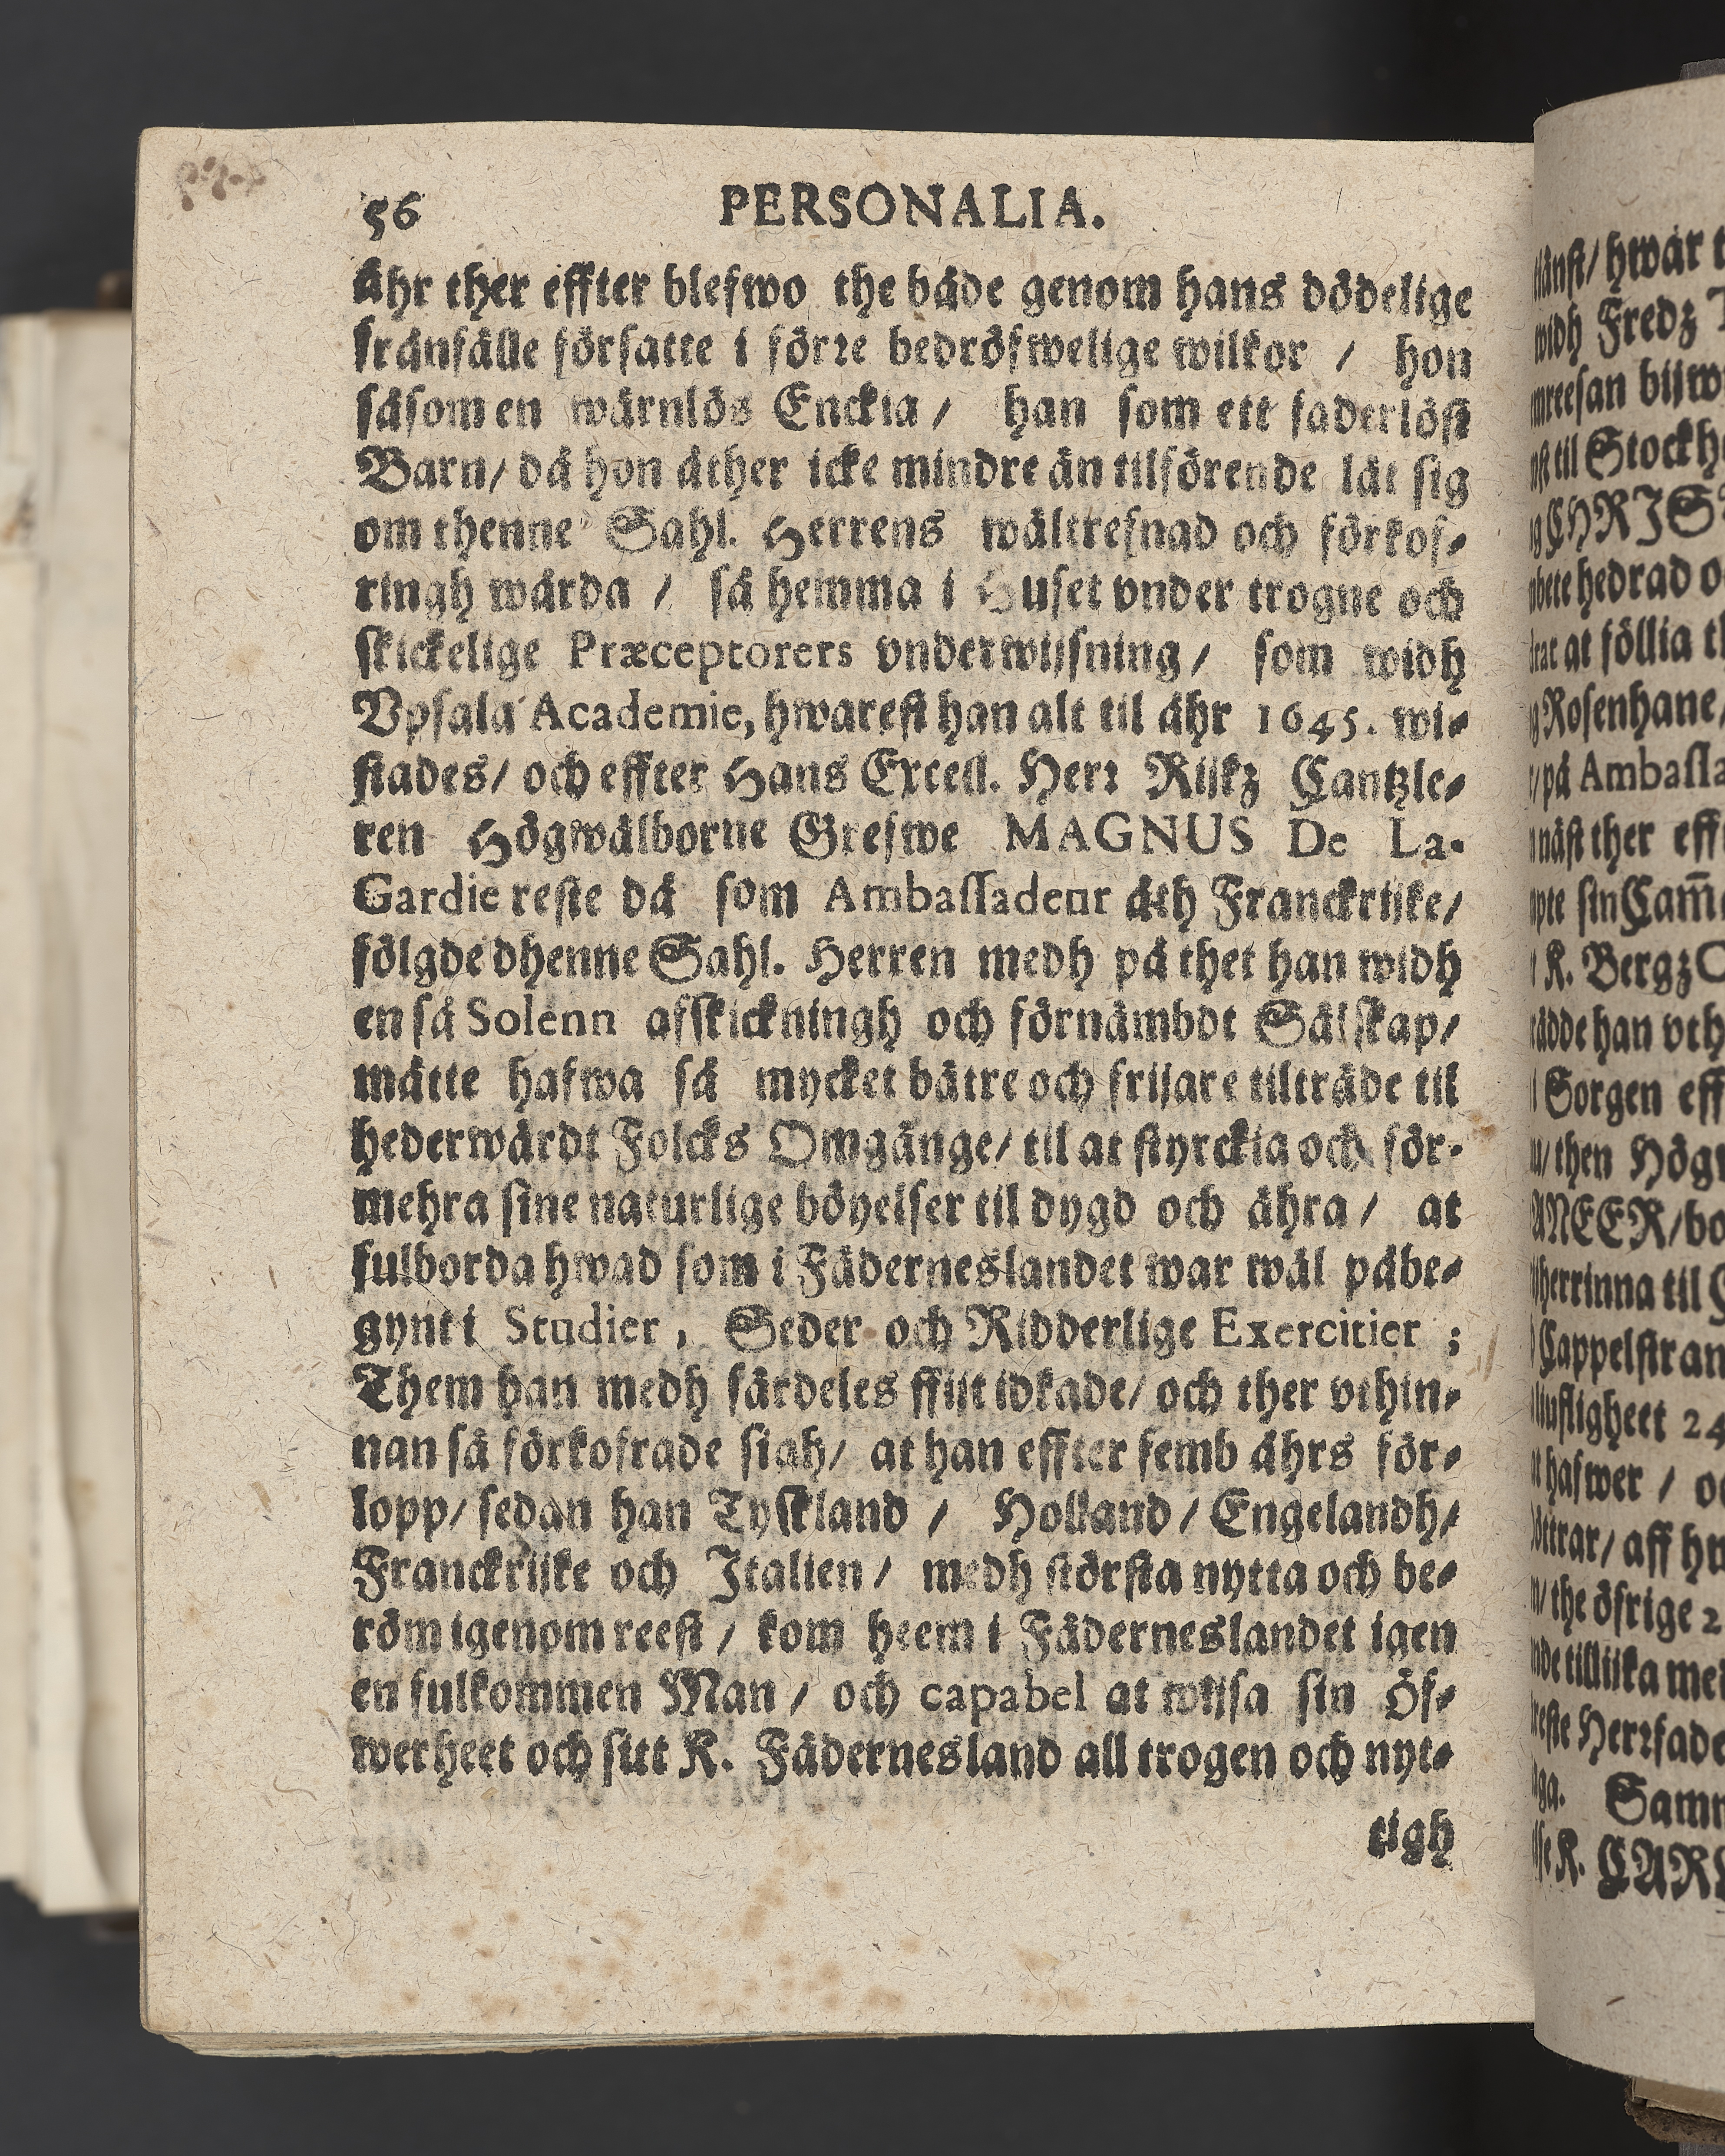 56 PERSONALIA.
åhr ther effter blefwo the både genom hans dödelige
frånfälle försatte i förre bedröfwelige wilkor / hon
såsom en wärnlös Enckia / han som ett faderlöst
Barn / då hon åther icke mindre än tilförende lät sig
om thenne Sahl. Herrens wältrefnad och förkof-
ringh wårda / så hemma i Huset vnder trogne och
skickelige Præceptorers vnderwijsning / som widh
Vpsala Academie, hwarest han alt til åhr 1645. wi-
stades / och effter Hans Excell. Herr Rijkz Cantzle-
ren Högwälborne Grefwe MAGNUS De La-
Gardie reste då som Ambassadeur åth Franckrijke /
fölgde dhenne Sahl. Herren medh på thet han widh
en så Solenn afskickningh och förnämbdt Sälskap /
måtte hafwa så mycket bätre och frijare tilträde til
hederwärdt Folcks Omgänge / til at styrckia och för-
mehra sine naturlige böyelser til dygd och ähra / at
fulborda hwad som i Fäderneslandet war wäl påbe-
gynt i Studier, Seder och Ridderlige Exercitier ;
Them han medh särdeles flijt idkade / och ther vthin-
nan så förkofrade sigh / at han effter femb åhrs för-
lopp / sedan han Tyskland / Holland / Engelandh /
Franckrijke och Italien / medh största nytta och be-
röm igenom reest / kom heem i Fäderneslandet igen
en fulkommen Man / och capabel at wijsa sin öf-
werheet och sitt K. Fädernesland all trogen och nyt-
tigh
hwar
widh Fredz
til Stockh
hedrad
at föllia
Rosenhane /
på
näst ther
K. Bergz
han vth
Sorgen
then
til
24
hafwer /
aff
the öfrige 2
Samm
K. CARL